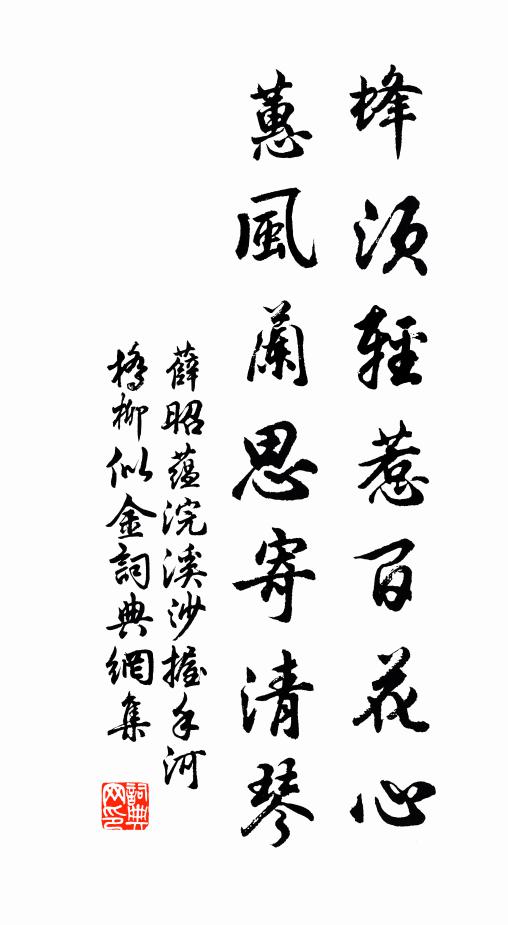 蜂須輕惹百花心
蕙風蘭思寄清琴
薛昭蘊浣溪沙握手河
橋柳似金詞典網集
詞典网印